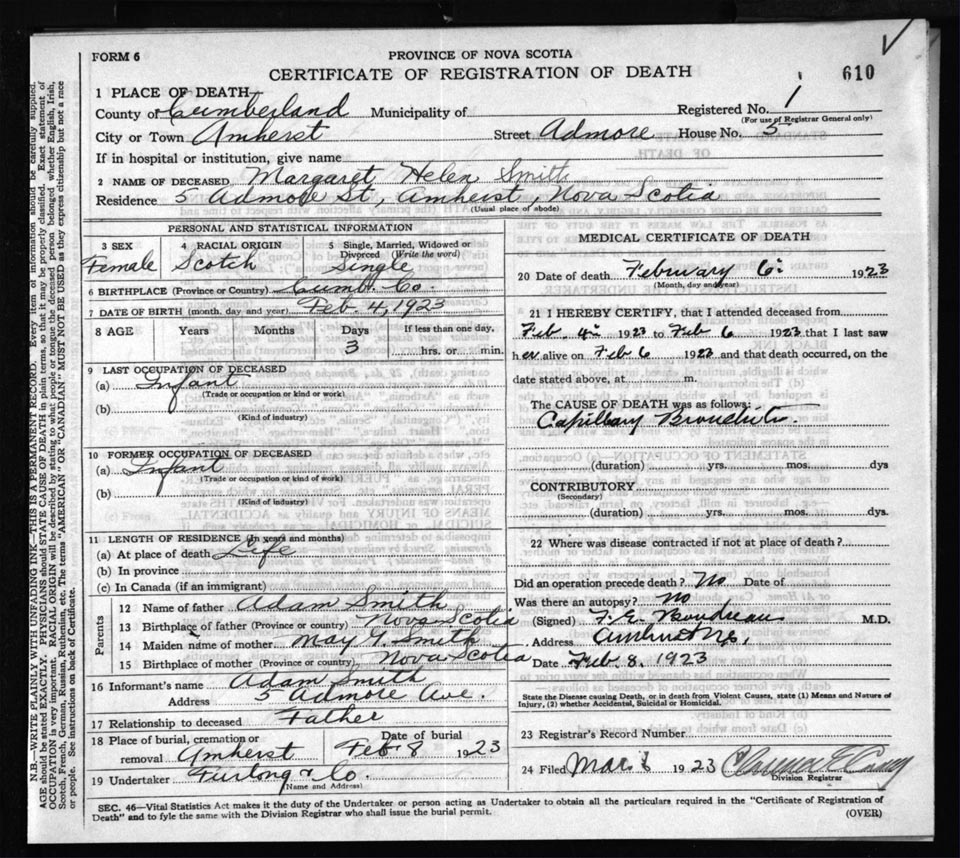 FORM 6
PROVINCE OF NOVA SCOTIA
CERTIFICATE OF REGISTRATION OF DEATH
610
1 PLACE OF DEATH
County of Cumberland Municipality of Registered No. 1
(For use of Registrar General only)
City or Town Amherst Street Admore House No. 5
If in hospital or institution, give name
2 NAME OF DECEASED Margaret Helen Smith
Residence 5 Admore St, Amherst, Nova Scotia
(Usual place of abode)
PERSONAL AND STATISTICAL INFORMATION
3 SEX
Female
4 RACIAL ORIGIN
Scotch
5 Single, Married, Widowed or
Divorced (Write the word)
Single
6 BIRTHPLACE (Province or Country) Cumb. Co.
7 DATE OF BIRTH (month, day and year) Feb. 4, 1923
8 AGE Years Months Days If less than one day,
3 hrs. or min.
9 LAST OCCUPATION OF DECEASED
(a) Infant
(Trade or occupation or kind or work)
(b)
(Kind of industry)
10 FORMER OCCUPATION OF DECEASED
(a) Infant
(Trade or occupation or kind of work)
(b)
(Kind of industry)
11 LENGTH OF RESIDENCE (In years and months)
(a) At place of death Life
(b) In province
(c) In Canada (if an immigrant)
Parents
12 Name of father Adam Smith
13 Birthplace of father (Province or country) Nova Scotia
14 Maiden name of mother May Smith
15 Birthplace of mother (Province or country) Nova Scotia
16 Informant's name Adam Smith
Address 5 Admore Ave.
17 Relationship to deceased Father
18 Place of burial, cremation or Date of burial
removal Amherst Feb. 8 1923
19 Undertaker Furlong & Co.
(Name and Address)
MEDICAL CERTIFICATE OF DEATH
20 Date of death February 6 1923
(Month, day and year)
21 I HEREBY CERTIFY, that I attended deceased from
Feb. 4 1923 to Feb 6 1923 that I last saw
her alive on Feb 6 1923 and that death occurred, on the
date stated above, at m.
The CAUSE OF DEATH was as follows:
Capillary Bronchitis
(duration) yrs. mos. dys
CONTRIBUTORY
(Secondary)
(duration) yrs. mos. dys.
22 Where was disease contracted if not at place of death?
Did an operation precede death? No Date of
Was there an autopsy? No
(Signed) M.D.
Address Amherst N.S.
Date Feb. 8. 1923
State the Disease causing Death, or in death from Violent Causes, state (1) Means and Nature of
Injury, (2) whether Accidental, Suicidal or Homicidal.
23 Registrar's Record Number
24 Filed Mar. 8 1923
Division Registrar
SEC. 46—Vital Statistics Act makes it the duty of the Undertaker or person acting as Undertaker to obtain all the particulars required in the "Certificate of Registration of
Death" and to fyle the same with the Division Registrar who shall issue the burial permit.
(OVER)
N.B.—WRITE PLAINLY WITH UNFADING INK—THIS IS A PERMANENT RECORD. Every item of information should be carefully supplied.
AGE should be stated EXACTLY. PHYSICIANS should STATE CAUSE OF DEATH in plain terms, so that it may be properly classified. Exact statement of
OCCUPATION is very important. RACIAL ORIGIN will be described by stating to what people or tongue the deceased person belonged whether English, Irish,
Scotch, French, German, Russian, Ruthenian, etc. The terms "AMERICAN" OR "CANADIAN" MUST NOT BE USED as they express citizenship but not a race
or people. See instructions on back of Certificate.